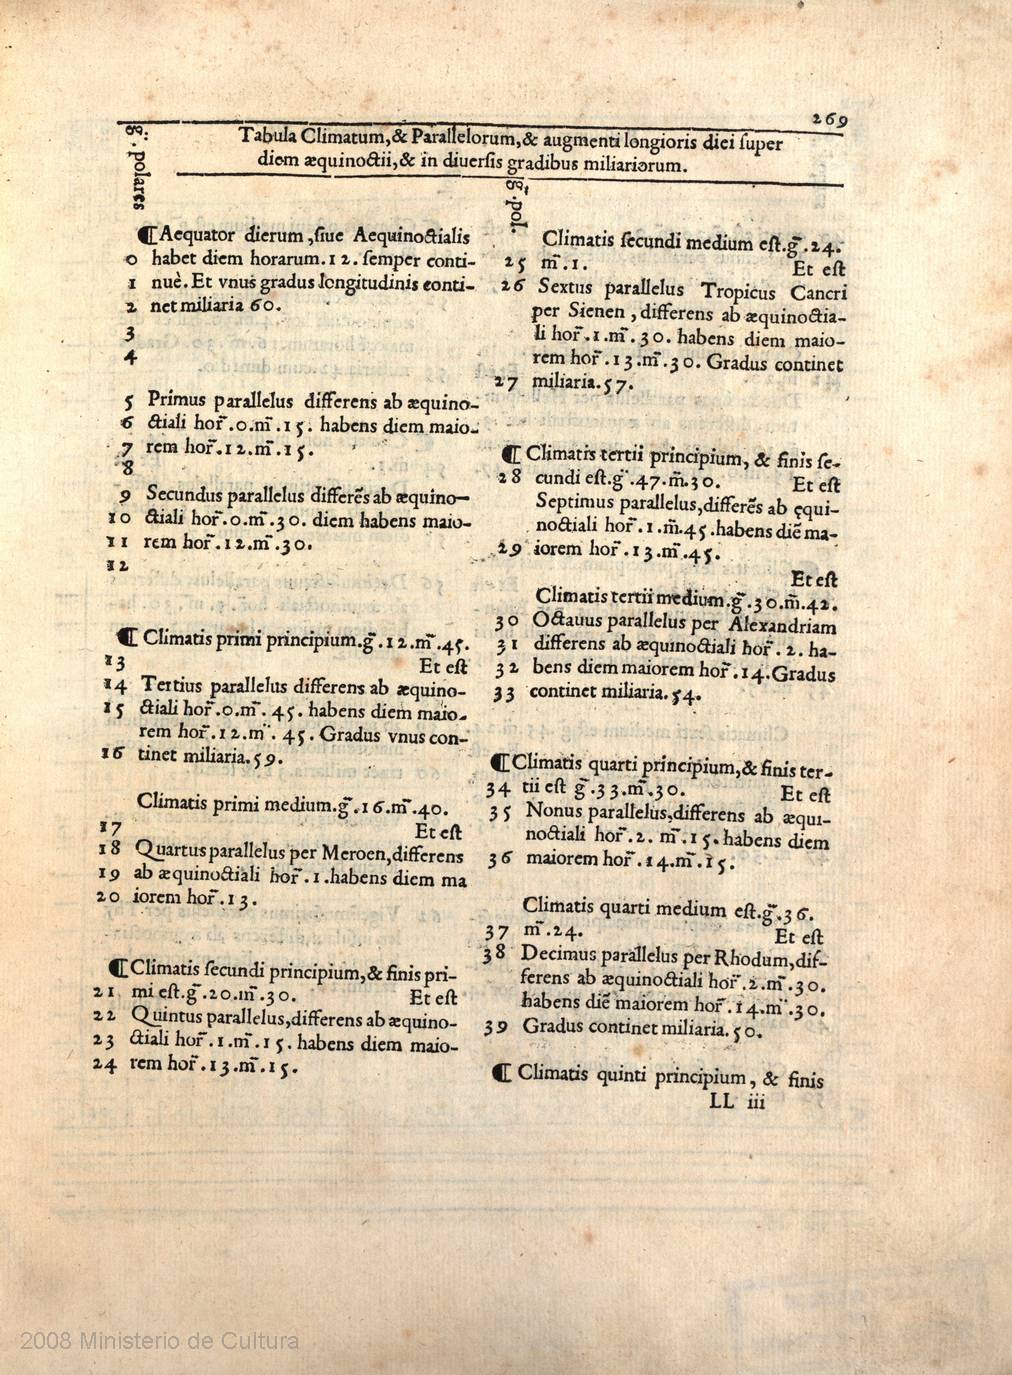 269
g̃. polares
Tabula Climatum,& Parallelorum,& augmenti longioris diei ſuper
diem æquinoctii,& in diuerſis gradibus miliariorum.
¶Aequator dierum ,ſiue Aequinoctialis
0 habet diem horarum.12. ſemper conti-
1 nuè.Et vnus gradus longitudinis conti-
2 net miliaria 60.
3
4
5 Primus parallelus differens ab æquino-
6 ctiali hor̃.0.m̃.15. habens diem maio-
7 rem hor̃.12.m̃.15.
8
9 Secundus parallelus differẽs ab æquino-
10 ctiali hor̃.0.m̃.30. diem habens maio-
11 rem hor̃.12.m̃.30.
12
¶ Climatis primi principium.g̃.12.m̃.45.
13 Et eſt
14 Tertius parallelus differens ab æquino-
15 ctiali hor̃.0.m̃. 45. habens diem maio-
rem hor̃.12.m̃. 45. Gradus vnus con-
16 tinet miliaria.59.
Climatis primi medium.g̃.16.m̃.40.
17 Et eſt
18 Quartus parallelus per Meroen,differens
19 ab æquinoctiali hor̃.1.habens diem ma
20 iorem hor̃.13.
¶Climatis ſecundi principium,& finis pri-
21 mi eſt.g̃.20.m̃.30. Et eſt
22 Quintus parallelus,differens ab æquino-
23 ctiali hor̃.1.m̃.15. habens diem maio-
24 rem hor̃.13.m̃.15.
g̃.pol.
Climatis ſecundi medium eſt.g̃.24.
25 m̃.1. Et eſt
26 Sextus parallelus Tropicus Cancri
per Sienen ,differens ab æquinoctia-
li hor̃.1.m̃.30. habens diem maio-
rem hor̃.13.m̃.30. Gradus continet
27 miliaria.57.
¶ Climatis tertii principium, & finis ſe-
28 cundi eſt.g̃.47.m̃.30. Et eſt
Septimus parallelus,differẽs ab ęqui-
noctiali hor̃.1.m̃.45.habens diẽ ma-
29 iorem hor̃.13.m̃.45.
Et eſt
Climatis tertii medium.g̃.30.m̃.42.
30 Octauus parallelus per Alexandriam
31 differens ab æquinoctiali hor̃.2. ha-
32 bens diem maiorem hor̃.14.Gradus
33 continet miliaria.54.
¶Climatis quarti principium,& finis ter-
34 tii eſt g̃.33.m̃.30. Et eſt
35 Nonus parallelus,differens ab æqui-
noctiali hor̃.2. m̃.15.habens diem
36 maiorem hor̃.14.m̃.15.
Climatis quarti medium eſt.g̃.36.
37 m̃.24. Et eſt
38 Decimus parallelus per Rhodum,dif-
ferens ab æquinoctiali hor̃.2.m̃.30.
habens diẽ maiorem hor̃.14.m̃.30.
39 Gradus continet miliaria.50.
¶ Climatis quinti principium, & finis
LL iii
2008 Ministerio de Cultura